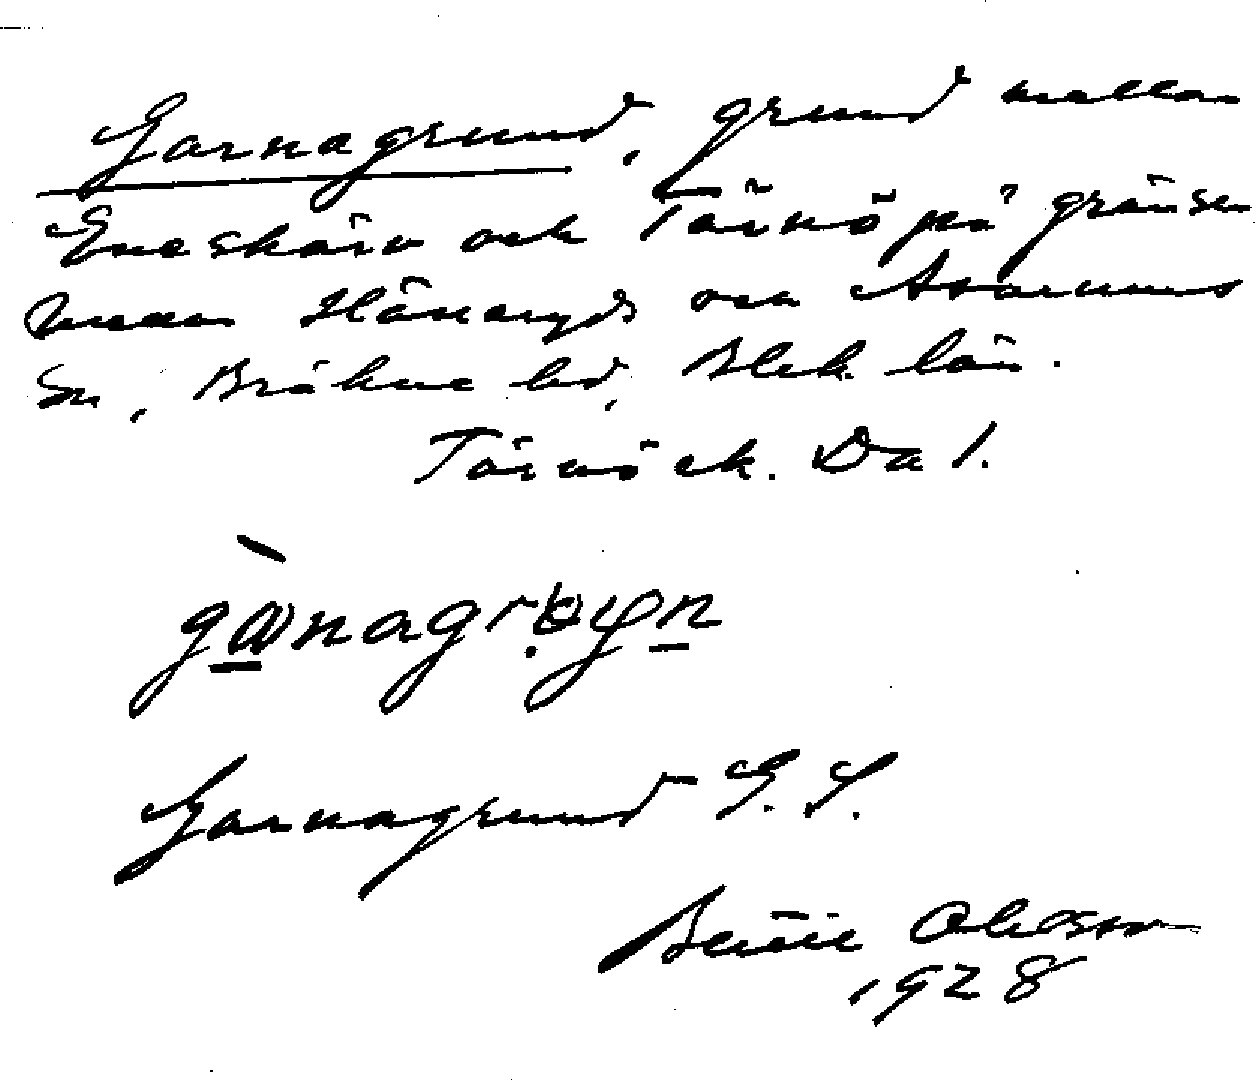 Garnagrund, grund mellan
Eneskärv och Tärnö på gränsen
mellan Hällaryds och Asarums
sn, Bräkne hd, Blek. län.
Tärnö ek. Da 1.
Garnagrund G. S.
Ohlsson
1928